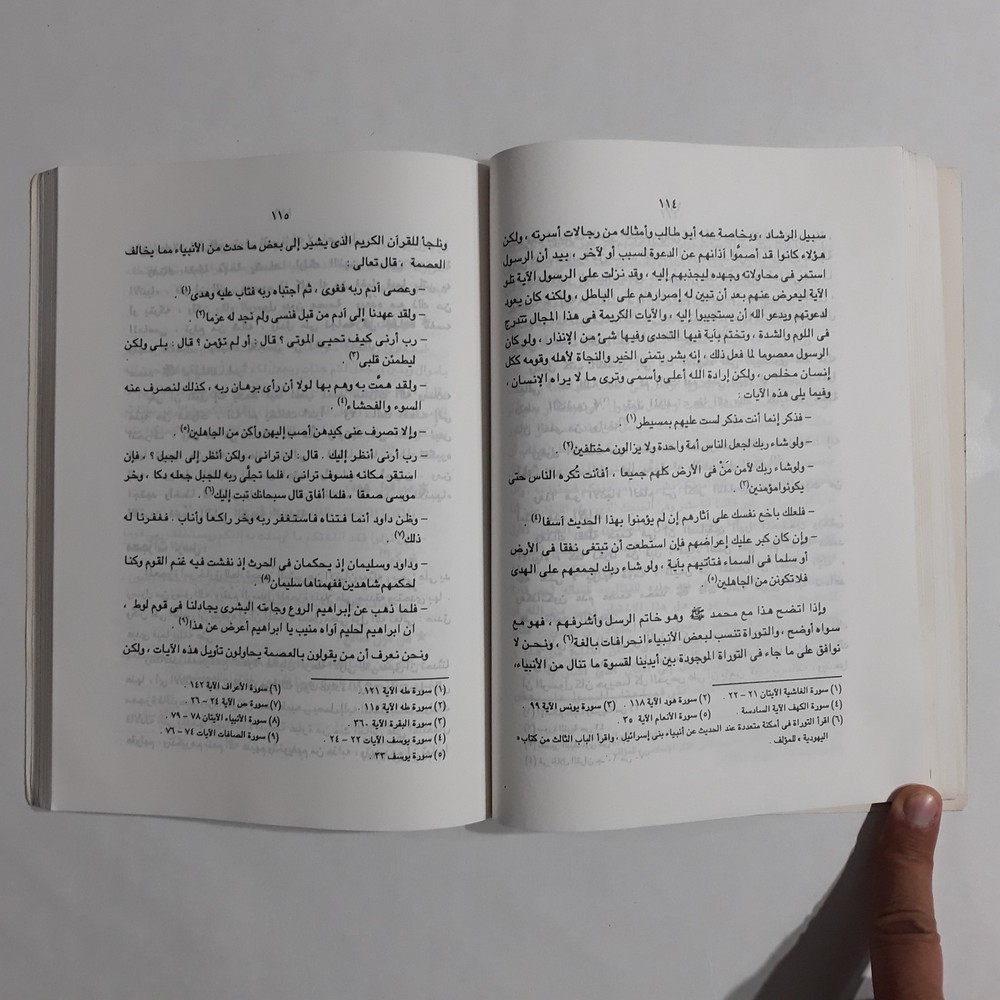 ١١٤
سبيل الرشاد ، وبخاصة عمه أبو طالب وأمثاله من رجالات أسرته ، ولكن
هؤلاء كانوا قد أصمُّوا آذانهم عن الدعوة لسبب أو لآخر ، بيد أن الرسول
استمر فى محاولاته وجهده ليجذبهم إليه ، وقد نزلت على الرسول الآية تلو
الآية ليعرض عنهم بعد أن تبين له إصرارهم على الباطل ، ولكنه كان يعود
لدعوتهم ويدعو الله أن يستجيبوا إليه ، والآيات الكريمة فى هذا المجال تتدرج
فى اللوم والشدة ، وتختم بآية فيها التحدى وفيها شئ من الإنذار ، ولو كان
الرسول معصوما لما فعل ذلك ، إنه بشر يتمنى الخير والنجاة لأهله وقومه ككل
إنسان مخلص ، ولكن إرادة الله أعلى وأسمى وترى ما لا يراه الإنسان ،
وفيما يلى هذه الآيات :
– فذكر إنما أنت مذكر لست عليهم بمسيطر(١) .
– ولو شاء ربك لجعل الناس أمة واحدة ولا يزالون مختلفين(٢) .
– ولوشاء ربك لآمن مَنْ فى الأرض كلهم جميعا ، أفأنت تُكره الناس حتى
يكونوا مؤمنين(٣) .
– فلعلك باخع نفسك على آثارهم إن لم يؤمنوا بهذا الحديث أسفا(٤) .
– وإن كان كبر عليك إعراضهم فإن استطعت أن تبتغى نفقا فى الأرض
أو سلما فى السماء فتأتيهم بآية ، ولو شاء ربك لجمعهم على الهدى
فلا تكونن من الجاهلين(٥) .
وإذا اتضح هذا مع محمد ﷺ وهو خاتم الرسل وأشرفهم ، فهو مع
سواه أوضح ، والتوراة تنسب لبعض الأنبياء انحرافات بالغة(٦) ، ونحن لا
نوافق على ما جاء فى التوراة الموجودة بين أيدينا لقسوة ما تنال من الأنبياء،
(١) سورة الغاشية الآيتان ٢١ – ٢٢ . (٢) سورة هود الآية ١١٨ . (٣) سورة يونس الآية ٩٩ .
(٤) سورة الكهف الآية السادسة . (٥) سورة الأنعام الآية ٣٥ .
(٦) اقرأ التوراة فى أمكنة متعددة عند الحديث عن أنبياء بنى إسرائيل ، واقرأ الباب الثالث من كتاب «
اليهودية » للمؤلف .
١١٥
ونلجأ للقرآن الكريم الذى يشير إلى بعض ما حدث من الأنبياء مما يخالف
العصمة ، قال تعالى :
– وعصى آدم ربه فغوى ، ثم اجتباه ربه فتاب عليه وهدى(١) .
– ولقد عهدنا إلى آدم من قبل فنسى ولم نجد له عزما(٢) .
– رب أرنى كيف تحيى الموتى ؟ قال : أو لم تؤمن ؟ قال : بلى ولكن
ليطمئن قلبى(٣) .
– ولقد همَّت به وهم بها لولا أن رأى برهان ربه ، كذلك لنصرف عنه
السوء والفحشاء(٤) .
– وإلا تصرف عنى كيدهن أصب إليهن وأكن من الجاهلين(٥) .
– رب أرنى أنظر إليك . قال : لن ترانى ، ولكن أنظر إلى الجبل ؟ ، فإن
استقر مكانه فسوف ترانى ، فلما تجلَّى ربه للجبل جعله دكا ، وخر
موسى صعقا ، فلما أفاق قال سبحانك تبت إليك(٦) .
– وظن داود أنما فتناه فاستغفر ربه وخر راكعا وأناب . فغفرنا له
ذلك(٧) .
– وداود وسليمان إذ يحكمان فى الحرث إذ نفشت فيه غنم القوم وكنا
لحكمهم شاهدين ففهمناها سليمان(٨) .
– فلما ذهب عن إبراهيم الروع وجاءته البشرى يجادلنا فى قوم لوط ،
أن ابراهيم لحليم أواه منيب يا ابراهيم أعرض عن هذا(٩) .
ونحن نعرف أن من يقولون بالعصمة يحاولون تأويل هذه الآيات ، ولكن
(١) سورة طه الآية ١٢١ . (٦) سورة الأعراف الآية ١٤٢ .
(٢) سورة طه الآية ١١٥ . (٧) سورة ص الآية ٢٤ – ٢٦ .
(٣) سورة البقرة الآية ٣٦٠ . (٨) سورة الأنبياء الآيتان ٧٨ – ٧٩ .
(٤) سورة يوسف الآيات ٢٢ – ٢٤ . (٩) سورة الصافات الآيات ٧٤ – ٧٦ .
(٥) سورة يوسف ٣٣ .